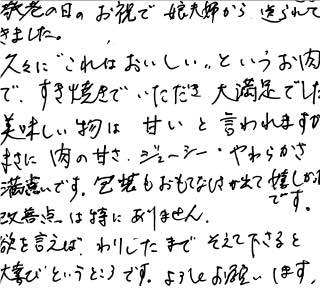 敬老の日の お祝で 娘夫婦から 送られて
きました。
久々に"これはおいしい"というお肉
で、すき焼きでいただき 大満足でした
美味しい物は 甘いと 言われますが
まさに 肉の甘さ、ジューシー・やわらかさ
満点です。包装もおもてなしが出て 嬉しかった
です。
改善点は特に ありません。
欲を言えば、わりしたまで そえて下さると
大喜びというところです。よろしくお願いします。